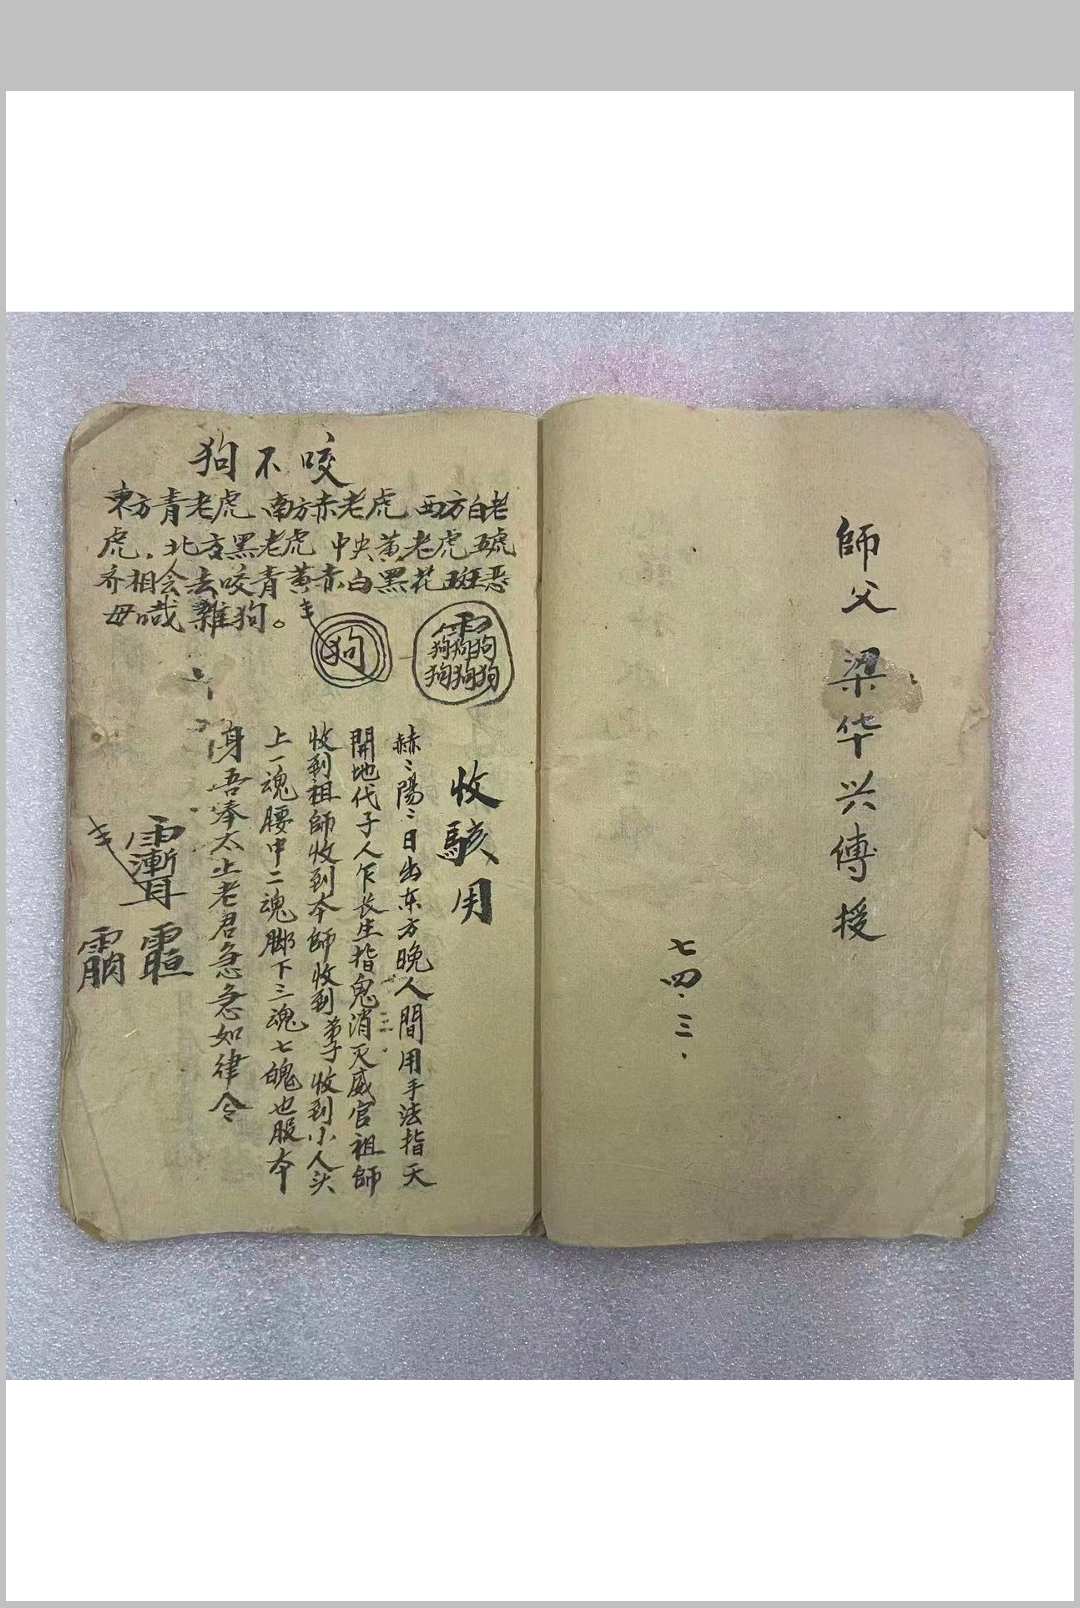 師父梁华兴傅授
七四.三.
狗不咬
東方青老虎 南方赤老虎 西方白老
虎.北方黑老虎 中央黄老虎 五虎
齐相会去咬青黄赤白黑花斑恶
毋哉雜狗。
狗
狗狗狗
狗狗狗
收駭用
赫〻陽〻日出东方晚人間用手法指天
開地代子人乍长生指鬼消灭威官祖師
三.
收到祖師收到本師收到弟子收到小人头
上一魂腰中二魂脚下三魂七魄也服本
身吾奉太上老君急急如律令